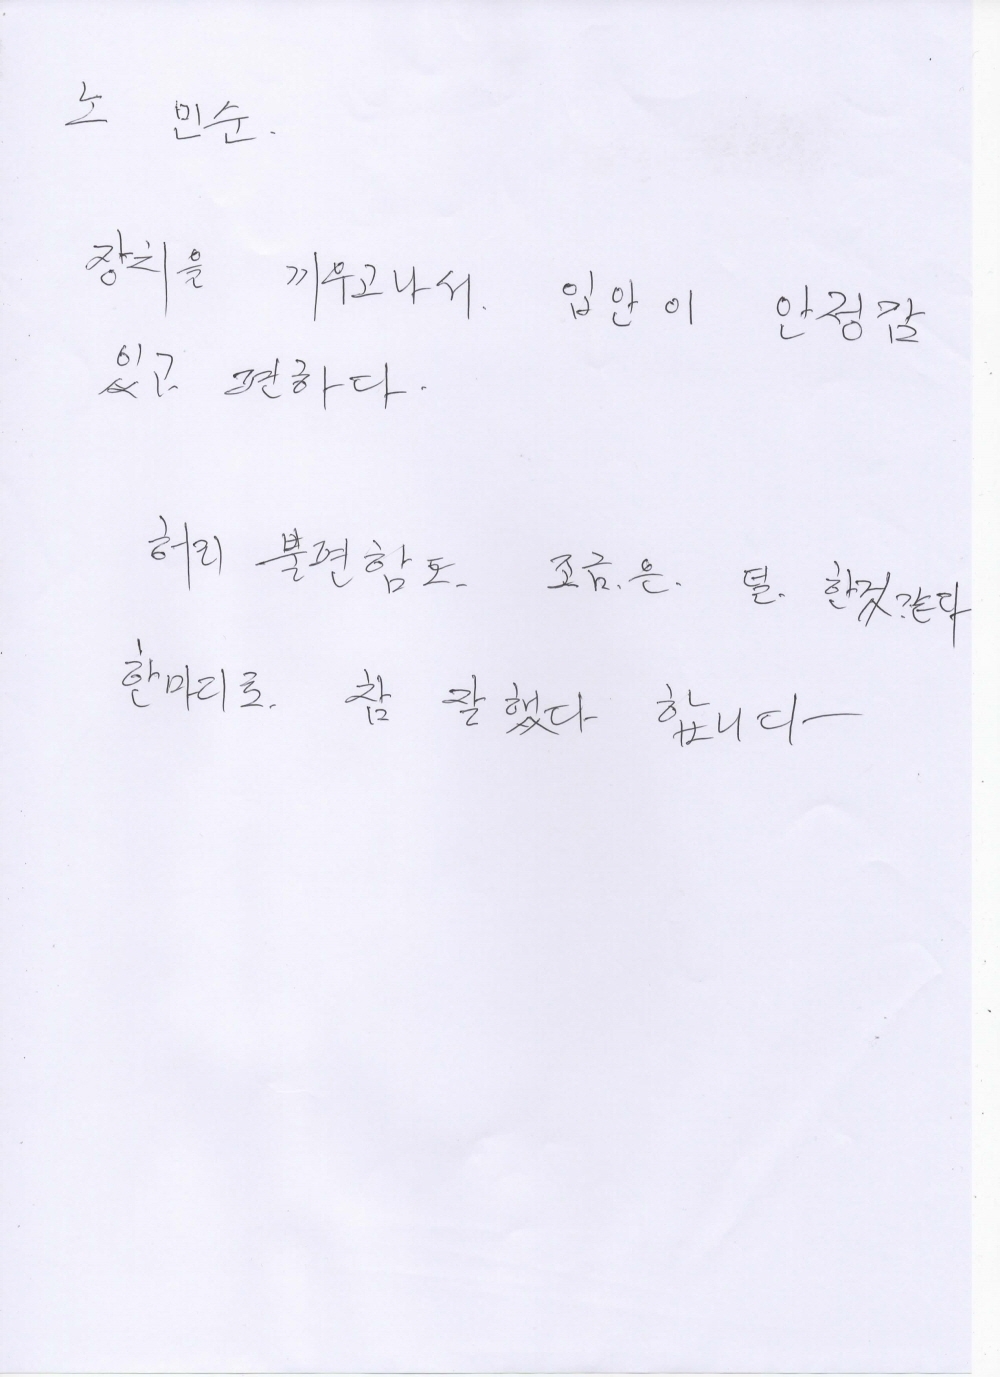 노 민순.
장치을 끼우고나서. 입안이 안정감
있고. 편하다.
허리 불편함도. 조금.은. 덜. 한것.같다
한마디로. 참 잘했다 합니다